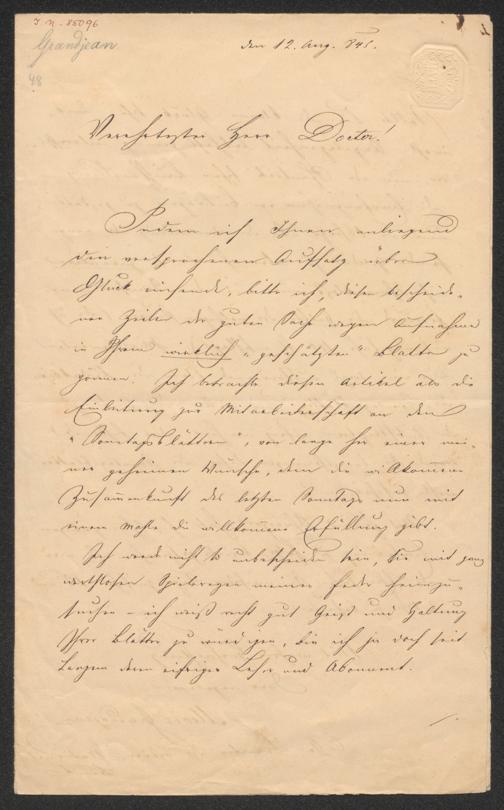 I. N. 85096
Grandjean
48
den 12. Aug. 845.
Verehrtester Herr Doctor!
Indem ich Ihnen anliegend
den versprochenen Aufsatz über
Gluck einsende, bitte ich, diesen bescheide-
nen Zeilen der guten Sache wegen Aufnahme
in Ihrem wirklich "geschätzten" Blatte zu
gönnen. Ich betrachte diesen Artikel als die
Einleitung zur Mitarbeiterschaft an den
"Sonntagsblättern", von lange her einer mei-
ner geheimen Wünsche, dem die willkomene
Zusammenkunft des letzten Sonntags nun mit
einem Mahle die willkommene Erfüllung gibt.
Ich werde nicht so unbescheiden sein, Sie mit ganz
werthlosen Spielereyen meiner Feder heimzu-
suchen – ich weiß recht gut Geist und Haltung
Ihrer Blätter zu würdigen, bin ich ja doch seit
Langem deren eifriger Leser und Abonnent.